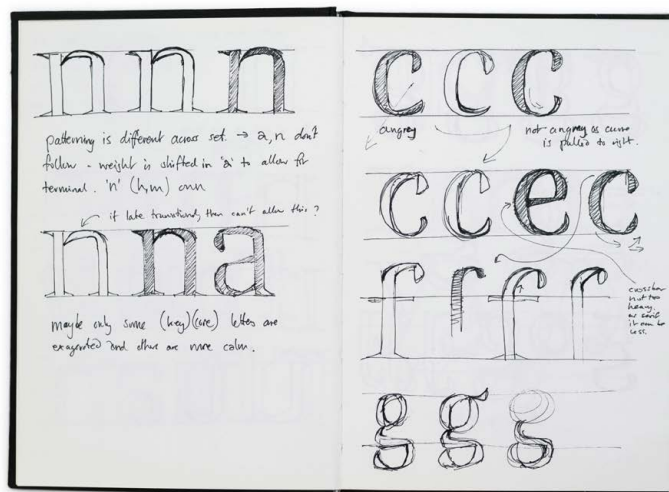 n n n
patterning is different across set. → a, n don't
follow - weight is shifted in 'a' to allow for
terminal. 'n' (h, m)
if late transitional, then can't allow this?
n n a
maybe only some (key) (core) letters are
exagerated and others are more calm.
c c c
angrey
not angrey as curve
is pulled to right.
c c e c
f r f f
crossbar
not too
heavy,
serif
it can be
less.
g g g